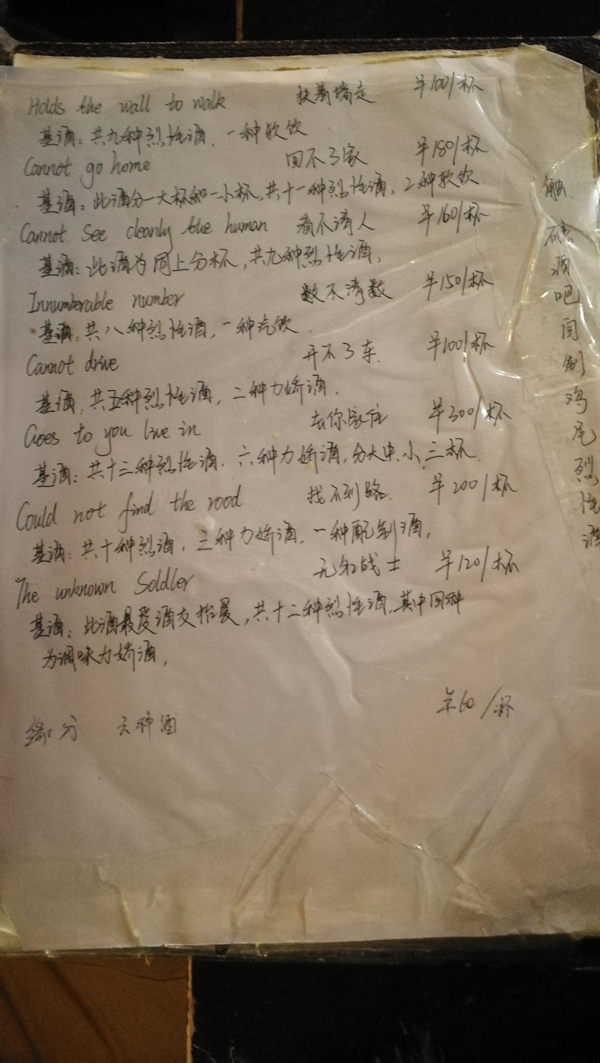 Holds the wall to walk 扶着墙走 ¥100/杯
基酒：共九种烈性酒，一种软饮
Cannot go home 回不了家 ¥180/杯
基酒：此酒分一大杯和一小杯，共十一种烈性酒，二种软饮.
Cannot See cleanly the human 看不清人 ¥160/杯
基酒：此酒为同上分杯，共九种烈性酒，
Innumberable number 数不清数 ¥150/杯
基酒，共八种烈性酒，一种汽饮.
Cannot drive 开不了车. ¥100/杯
基酒，共五种烈性酒，二种力娇酒.
Goes to you live in 去你家住 ¥300/杯
基酒：共十三种烈性酒. 六种力娇酒，分大中.小.三杯.
Could not find the rood 找不到路. ¥200/杯
基酒：共十种烈酒，三种力娇酒，一种配制酒，
The unknown Soldler 无名战士 ¥120/杯
基酒：此酒最受酒友推，共十二种烈性酒，其中四种
为调味力娇酒，
缘分 六种酒 ¥60/杯
酒
吧
自
制
鸡
尾
烈
性
酒